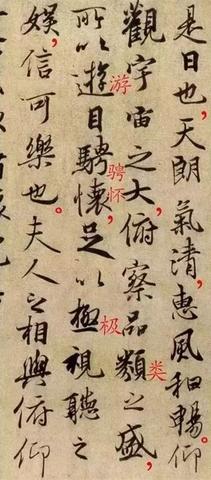 是日也，天朗氣清，惠風和暢。仰
类
觀宇宙之大，俯察品類之盛，
游
骋怀
极
所以遊目騁懷，足以極視聽之
娛，信可樂也。夫人之相與俯仰